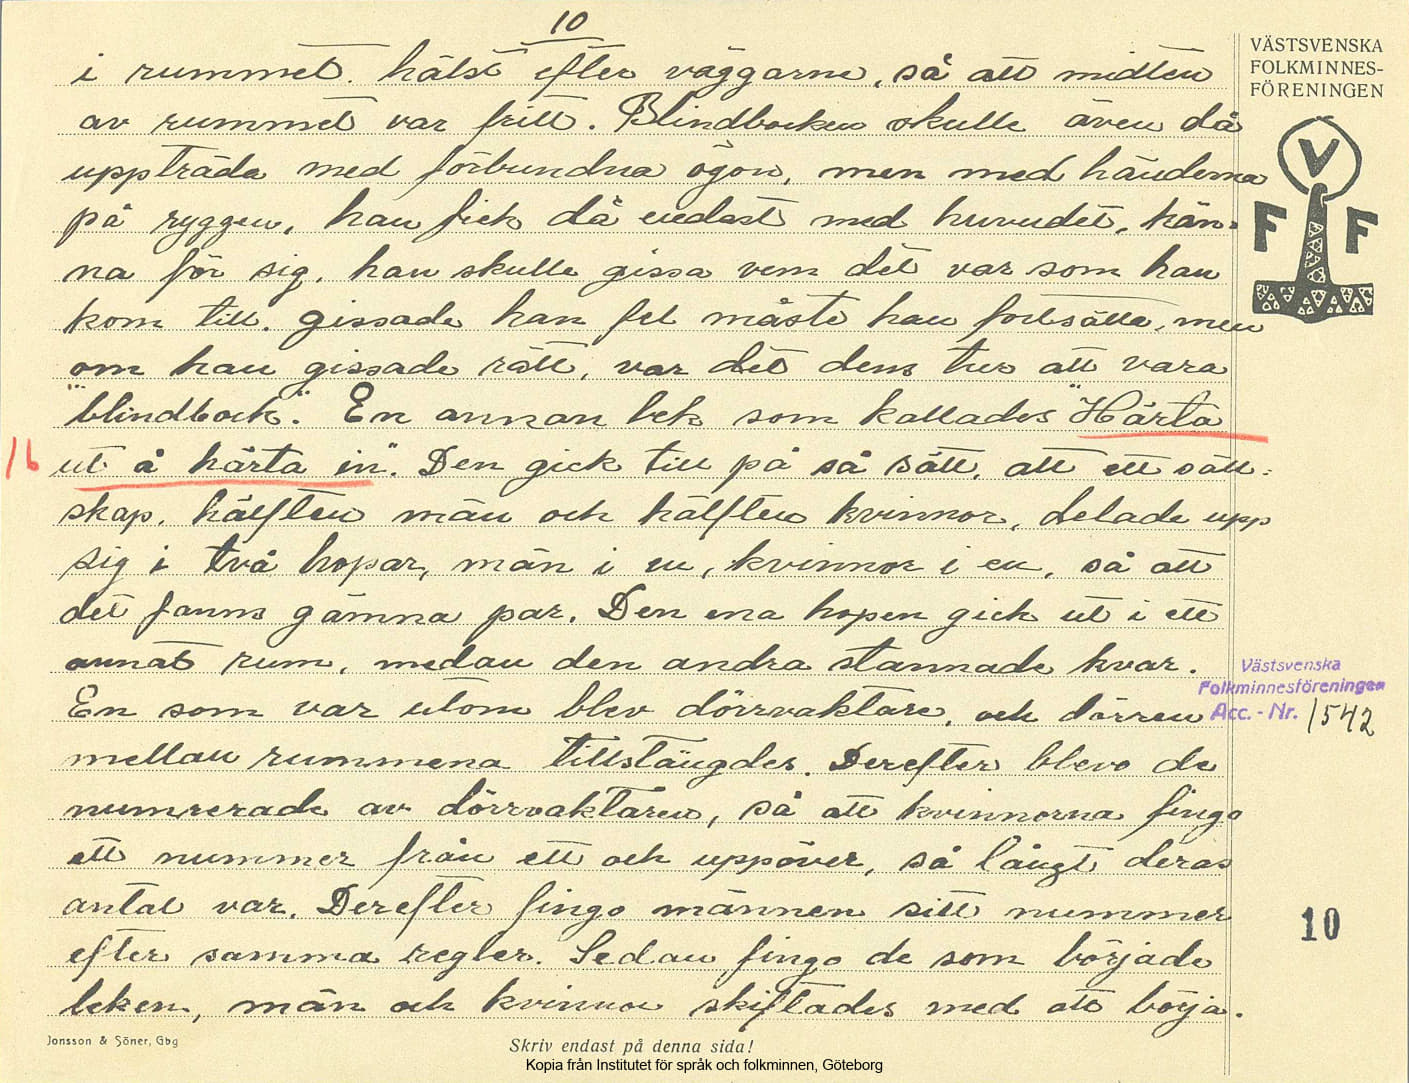 10
i rummet. hälst efter väggarne, så att midten
av rummet var fritt. Blindbocken skulle även då
uppträda med förbundna ögon, men med händerna
på ryggen, han fick då endast med huvudet, kän-
na för sig, han skulle gissa vem det var som han
kom till. gissade han fel måste han fortsätta, men
om han gissade rätt, var det dens tur att vara
"blindbock". En annan lek som kallades "Härta
16
ut å härta in". Den gick till på så sätt, att ett säll-
skap, hälften män och hälften kvinnor, delade upp
sig i två hopar, män i en, kvinnor i en, så att
det fanns gämna par. Den ena hopen gick ut i ett
annat rum, medan den andra stannade kvar.
En som var utom blev dörrvaktare, och dörren
mellan rummena tillstängdes. Derefter blevo de
numrerade av dörrvaktaren, så att kvinnorna fingo
ett nummer från ett och uppöver, så långt deras
antal var. Derefter fingo männen sitt nummer
efter samma regler. Sedan fingo de som började
leken, män och kvinnor skiftades med att börja.
VÄSTSVENSKA
FOLKMINNES-
FÖRENINGEN
V
F F
Västsvenska
Folkminnesföreningen
Acc. - Nr. 1542
10
Jonsson & Söner, Gbg
Skriv endast på denna sida!
Kopia från Institutet för språk och folkminnen, Göteborg